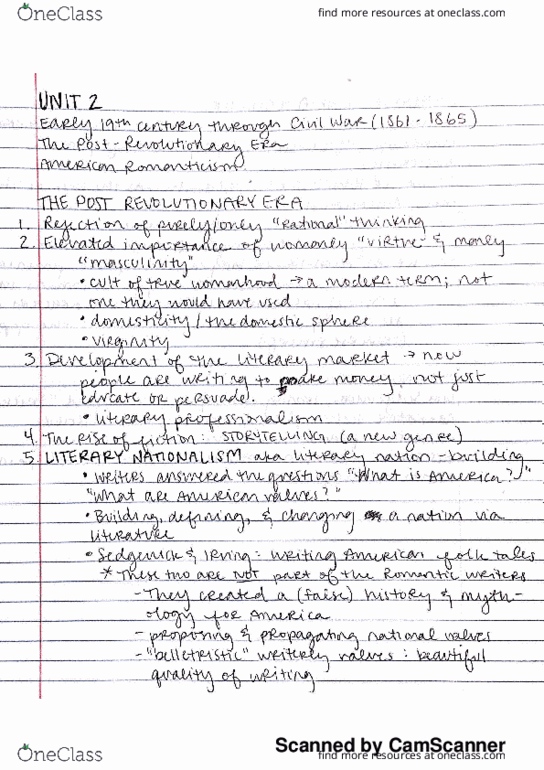 OneClass
find more resources at oneclass.com
UNIT 2
Early 19th century through Civil War (1861 - 1865)
The Post-Revolutionary Era
American Romanticism
THE POST REVOLUTIONARY ERA
1. Rejection of purely/only "rational" thinking
2. Elevated importance of womanly "virtue" & manly
"masculinity"
• cult of true womanhood → a modern term; not
one they would have used
• domesticity/the domestic sphere
• virginity
3. Development of the literary market → now
people are writing to make money, not just
educate or persuade.
• literary professionalism
4. The rise of fiction: STORYTELLING (a new genre)
5. LITERARY NATIONALISM aka literary nation-building
• writers answered the questions "What is America?,"
"What are American values?"
• Building, defining, & changing a nation via
literature
• Sedgewick & Irving: writing American folk tales
* These two are NOT part of the Romantic writers
- They created a (false) history & myth-
ology for America
- proposing & propagating national values
- "belletristic" writerly values: beautiful
quality of writing
Scanned by CamScanner
OneClass
find more resources at oneclass.com